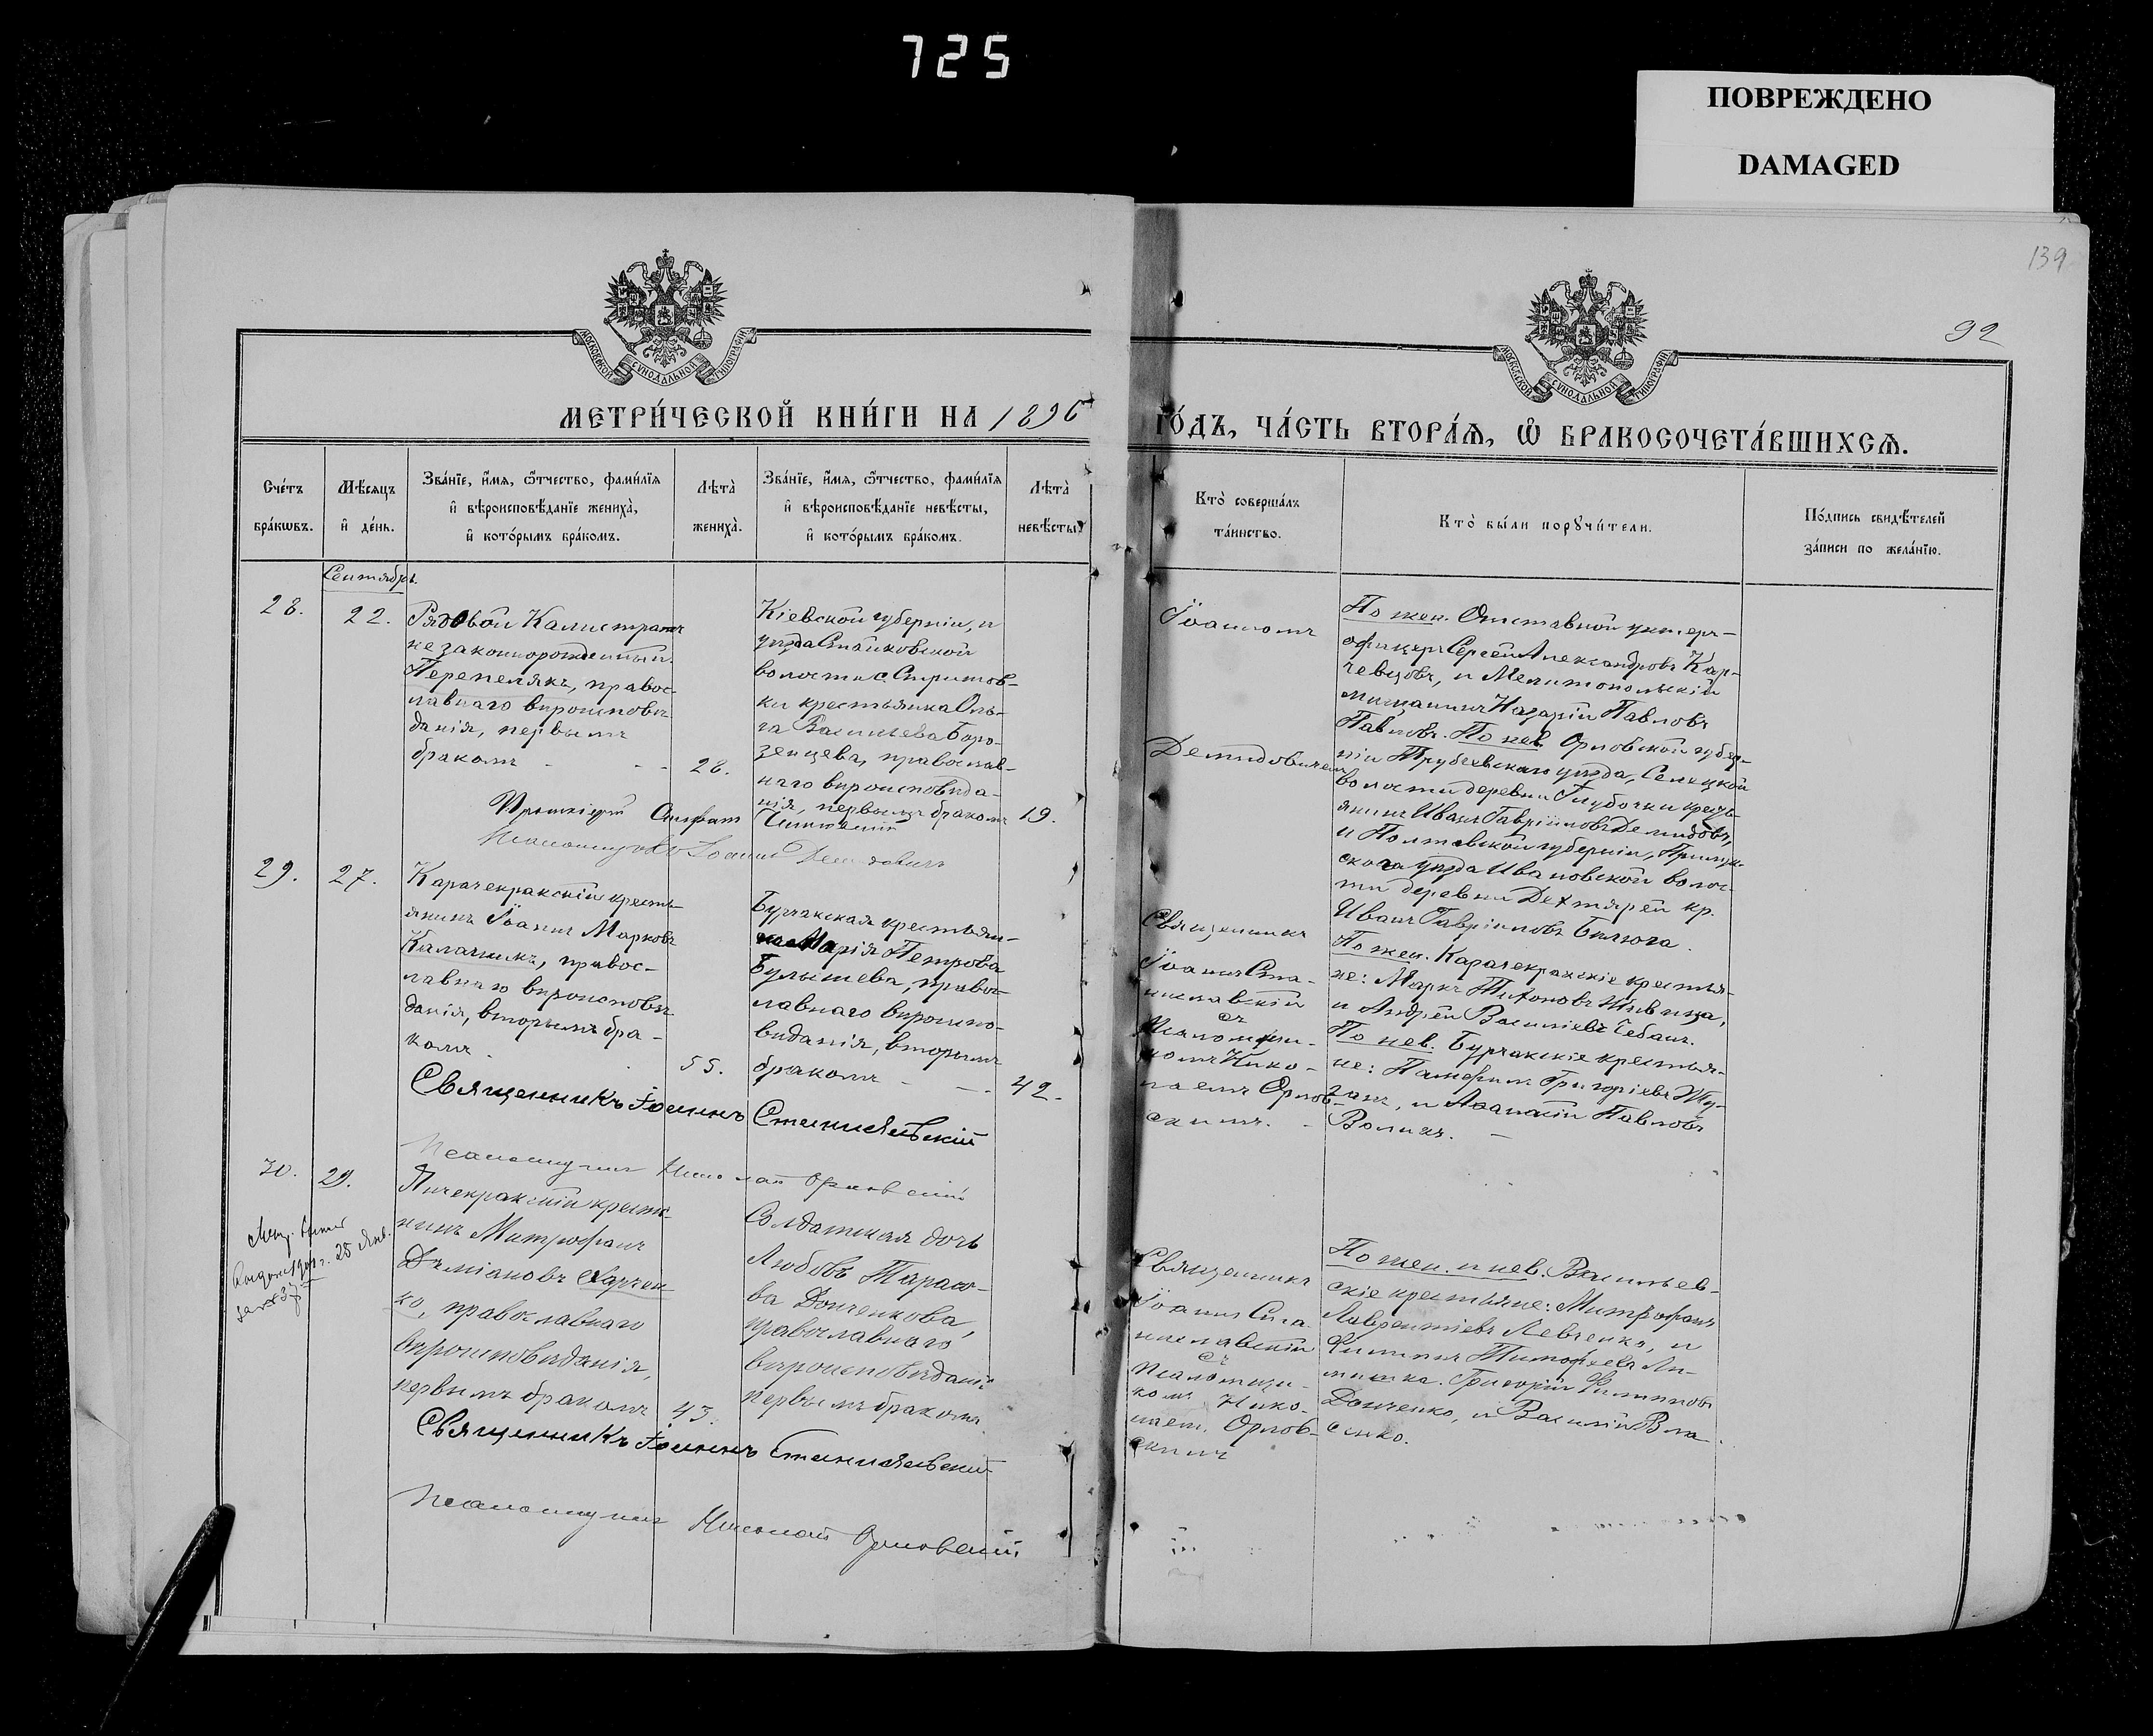 725
ПОВРЕЖДЕНО
DAMAGED
139
92
МОСКОВСКОЙ СѴНОДАЛЬНОЙ ТИПОГРАФІИ
МОСКОВСКОЙ СѴНОДАЛЬНОЙ ТИПОГРАФІИ
МЕТРИ́ЧЕСКОЙ КНИ́ГИ НА 1896
ГО́ДЪ, ЧА́СТЬ ВТОРА́Ѧ, Ѡ҆ БРАКОСОЧЕТА́ВШИХСѦ.
Сче́тъ
бра́кѡвъ.
Мѣ́сяцъ
и҆ де́нь.
Зва́нїе, и҆́мя, ѻ҆́тчество, фами́лїя
и҆ вѣроисповѣ́данїе жениха̀,
и҆ кото́рымъ бра́комъ.
Лѣта̀
жениха̀.
Зва́нїе, и҆́мя, ѻ҆́тчество, фами́лїя
и҆ вѣроисповѣ́данїе невѣ́сты,
и҆ кото́рымъ бра́комъ.
Лѣта̀
невѣ́сты.
Кто̀ соверша́лъ
та́инство.
Кто̀ бы́ли порꙋчи́тели.
По́дпись свидѣ́телей
за́писи по жела́нїю.
Сентябрь.
28.
22.
Рядовой Калистратъ
незаконнорожденный
Перепелякъ, правос-
лавнаго вѣроисповѣ-
данія, первымъ
бракомъ - - -
28.
Кіевской губерніи, и
уѣзда Стайковской
волости с. Стритов-
ки крестьянка Оль-
га Васильева Боро-
зенцева, православ-
наго вѣроисповѣда-
нія, первымъ бракомъ
19.
Іоанномъ
Демидовичемъ
По жен. Отставной унтеръ-
офицеръ Сергей Александровъ Кар-
чевцовъ, и Мелитопольскій
мѣщанинъ Назарій Павловъ
Павловъ. По нев. Орловской губер-
ніи Трубчевскаго уѣзда, Селецкой
волости деревни Глубочки кресть-
янинъ Иванъ Гавріиловъ Демидовъ,
и Полтавской губерніи, Прилук-
скаго уѣзда Ивановской волос-
ти деревни Дехтярей кр.
Иванъ Гавріиловъ Билюга.
Псаломщикъ Іоаннъ Демидовичъ
29.
27.
Карачекракскій кресть-
янинъ Іоаннъ Марковъ
Калачникъ, правос-
лавнаго вѣроисповѣ-
данія, вторымъ бра-
комъ.
55.
Бурчакская крестьян-
ка Марія Петрова
Булышева, правос-
лавнаго вѣроиспо-
вѣданія, вторымъ
бракомъ - -
42.
Священникъ
Іоаннъ Ста-
ниславскій
съ
Псаломщи-
комъ Нико-
лаемъ Орлов-
скимъ. -
По жен. Карачекракскіе крестья-
не: Маркъ Тихоновъ
и Андрей Васильевъ Чебанъ.
По нев. Бурчакскіе крестья-
не: Памфилъ Григорьевъ Жу-
ганъ, и Афанасій Павловъ
Волыкъ. -
Священникъ Іоаннъ Станиславскій
Псаломщикъ Николай Орловскій
30.
29.
Янчекракскій крестья-
нинъ Митрофанъ
Даміановъ Харчен-
ко, православнаго
вѣроисповѣданія,
первымъ бракомъ
43.
Солдатская дочь
Любовь Тарасо-
ва Донченкова,
православнаго
вѣроисповѣданія
первымъ бракомъ
Священникъ
Іоаннъ Ста-
ниславскій
съ
Псаломщи-
комъ Нико-
лаем. Орлов-
скимъ
По жен. и нев. Васильев-
скіе крестьяне: Митрофанъ
Лаврентіевъ Левченко, и
Филиппъ Тимофеевъ Ли-
. Григорій Филипповъ
Донченко, и Василій Вла-
сенко.
Священникъ Іоаннъ Станиславскій
Псаломщикъ Николай Орловскій